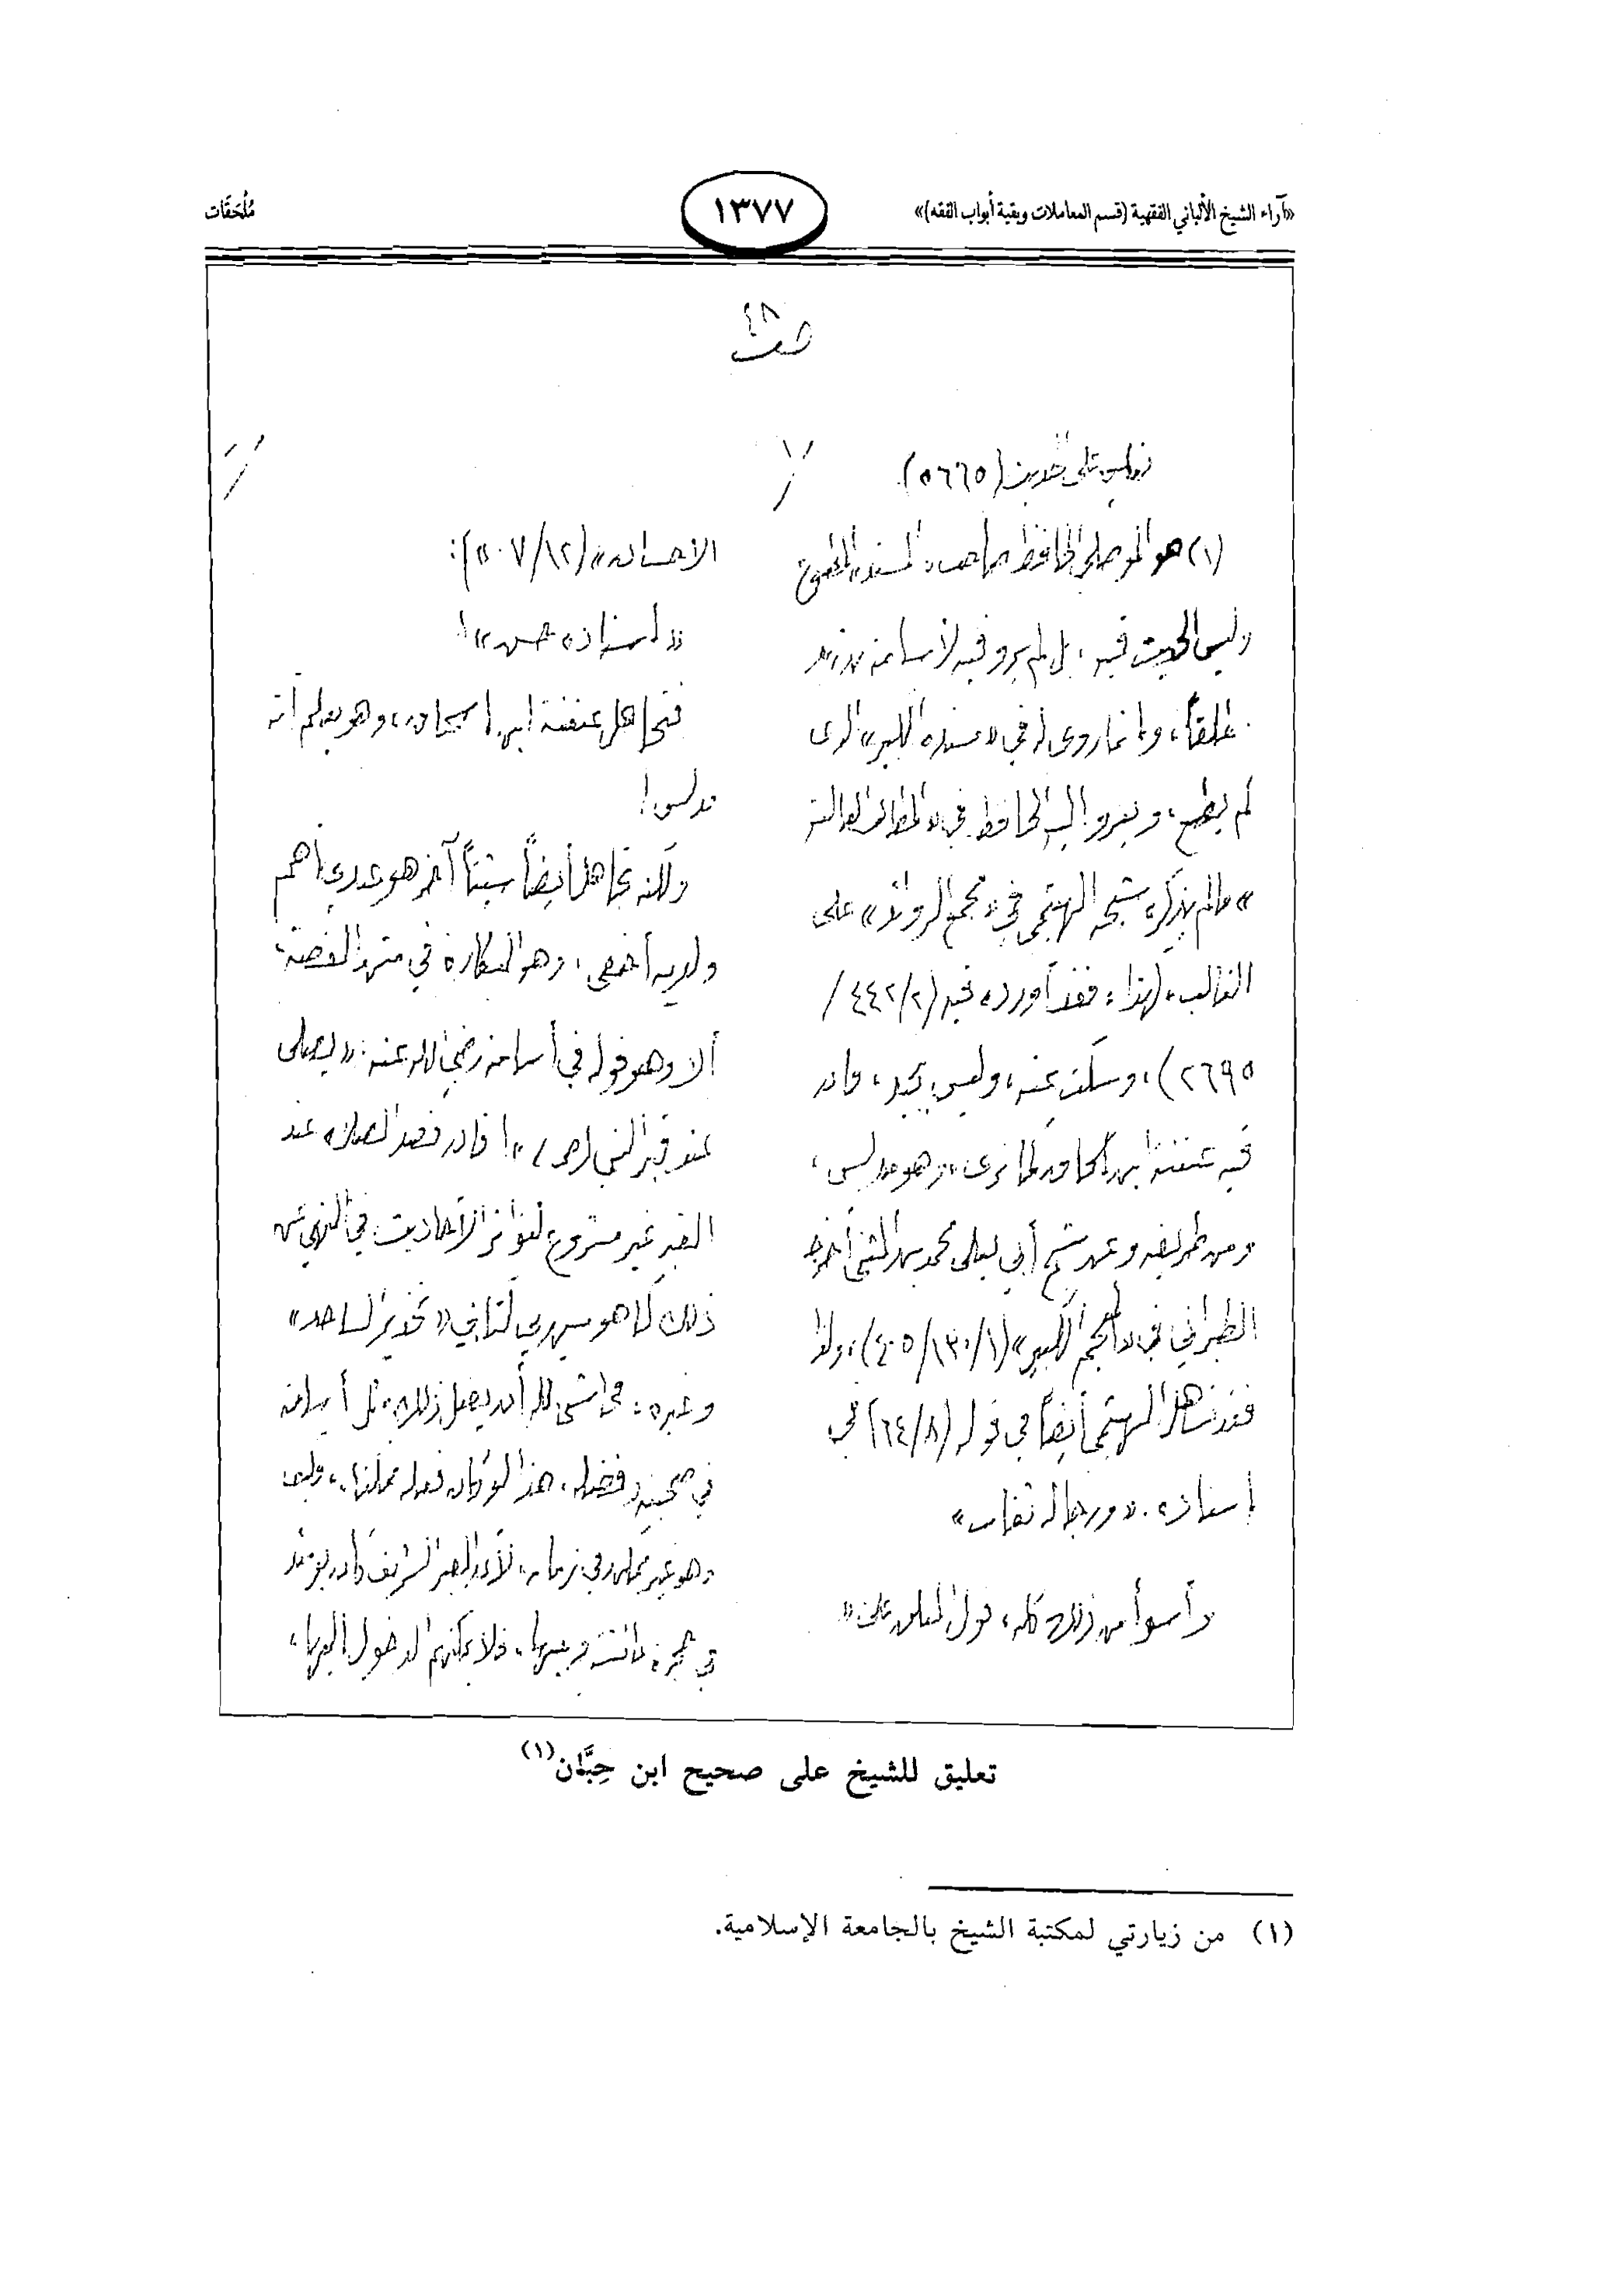 «آراء الشيخ الألباني الفقهية (قسم المعاملات وبقية أبواب الفقه)»
١٣٧٧
مُلْحَقَات
٤٨
تعليق على حديث (٥٦٦٥)
(١) هو الموصلي الحافظ صاحب «المسند» المطبوع
وليس الحديث فيه، بل لم يرو فيه لأسامة بن زيد
مطلقاً، وإنما روى له في «مسنده الكبير» الذي
لم يطبع، ويعزو إليه الحافظ في «المطالب العالية
» ما لم يذكره شيخه الهيثمي في «مجمع الزوائد» على
الغالب، لهذا، فقد أورده فيه (٤٤٢/٢/
٢٦٩٥)، وسكت عنه، وليس بجيد، فإن
فيه عنعنة ابن إسحاق كما ترى، وهو مدلس،
ومن طريقه وعن شيخ أبي يعلى محمد بن المثنى أخرجه
الطبراني في «المعجم الكبير» (٤٠٥/١٣٠/١)، ولذا
فقد تساهل الهيثمي أيضاً في قوله (٦٤/٨) في
إسناده. «ورجاله ثقات»
وأسوأ من ذلك كله، قول المعلق على «
الإحسان» (٥٠٧/١٢):
«إسناده حسن»!
فتجاهل عنعنة ابن إسحاق، وهو يعلم أنه
مدلس!
ولكنه تجاهل أيضاً شيئاً آخر هو عندي أهم
ولديه أخفى، وهو النكارة في متن القصة،
ألا وهو قوله في أسامة رضي الله عنه: «يصلي
عند قبر النبي (ص)»! فإن قصد الصلاة عند
القبر غير مشروع لتواتر الأحاديث في النهي عن
ذلك كما هو مبين في كتابي «تحذير الساجد»
وغيره، فحاشى لله أن يفعل ذلك مثل أسامة
في صحبته وفضله، هذا لو كان فعله ممكنا، وليس
وهو غير ممكن في زمانه، لأن القبر الشريف كان يومئذ
في حجرة عائشة وبيتها، فلا يمكنهم الدخول إليها،
تعليق للشيخ على صحيح ابن حِبَّان(١)
(١) من زيارتي لمكتبة الشيخ بالجامعة الإسلامية.